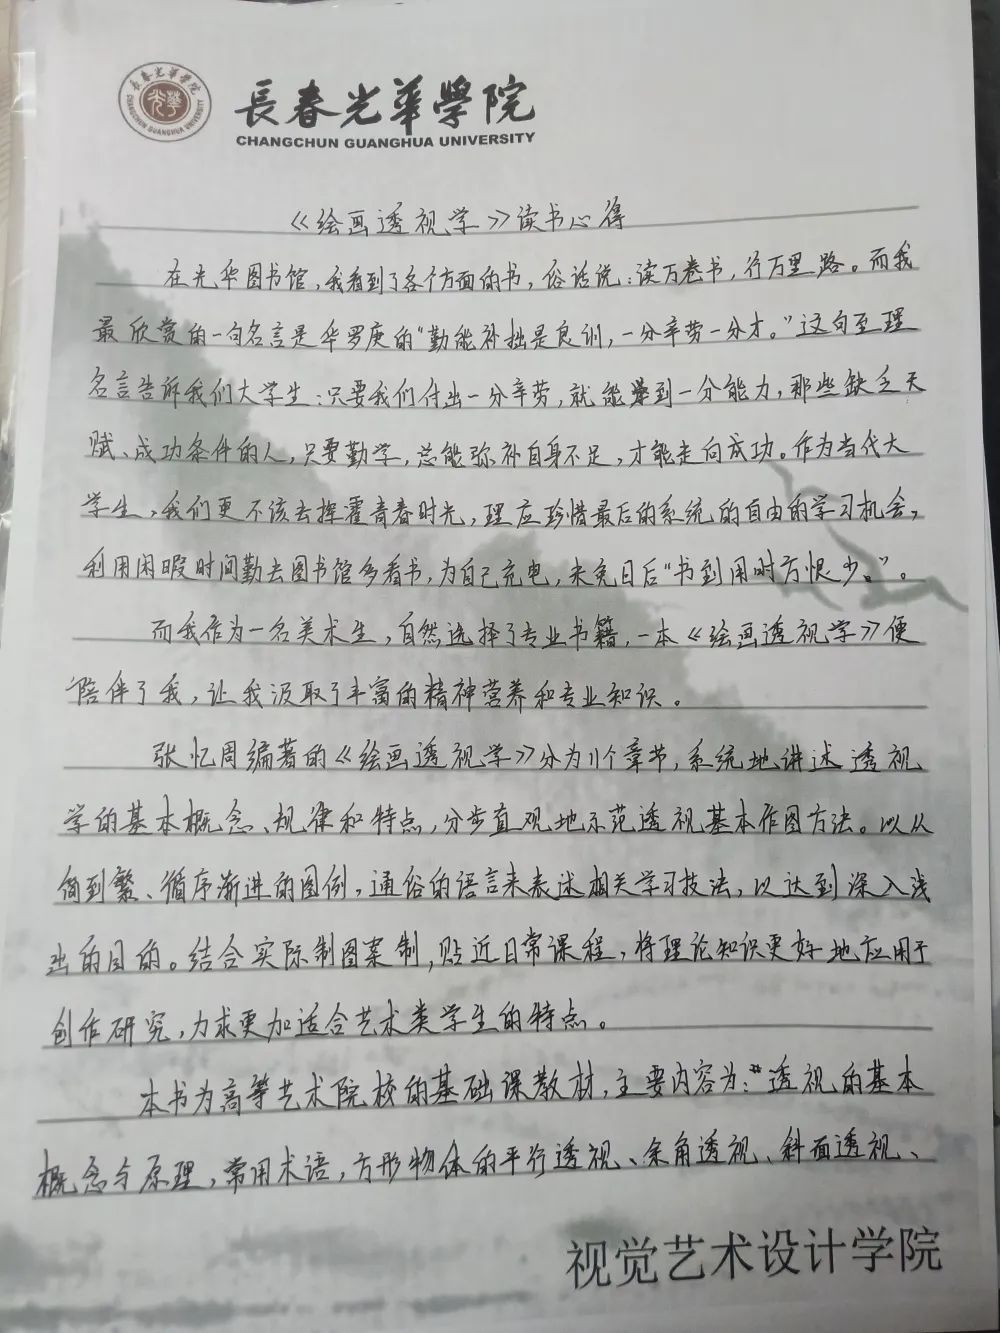 長春光華學院
長春光華學院
CHANGCHUN GUANGHUA UNIVERSITY
CHANGCHUN GUANGHUA UNIVERSITY
《绘画透视学》读书心得
在光华图书馆，我看到了各个方面的书，俗话说：读万卷书，行万里路。而我
最欣赏的一句名言是华罗庚的“勤能补拙是良训，一分辛劳一分才。”这句至理
名言告诉我们大学生：只要我们付出一分辛劳，就能得到一分能力，那些缺乏天
赋、成功条件的人，只要勤学，总能弥补自身不足，才能走向成功。作为当代大
学生，我们更不该去挥霍青春时光，理应珍惜最后的系统的自由的学习机会，
利用闲暇时间勤去图书馆多看书，为自己充电，来免日后“书到用时方恨少。”。
而我作为一名美术生，自然选择了专业书籍，一本《绘画透视学》便
陪伴了我，让我汲取了丰富的精神营养和专业知识。
张忆周编著的《绘画透视学》分为11个章节，系统地讲述透视
学的基本概念、规律和特点，分步直观地示范透视基本作图方法。以从
简到繁、循序渐进的图例，通俗的语言来表述相关学习技法，以达到深入浅
出的目的。结合实际制图案制，贴近日常课程，将理论知识更好地应用于
创作研究，力求更加适合艺术类学生的特点。
本书为高等艺术院校的基础课教材，主要内容为：“透视的基本
概念与原理，常用术语，方形物体的平行透视、余角透视、斜面透视、
视觉艺术设计学院